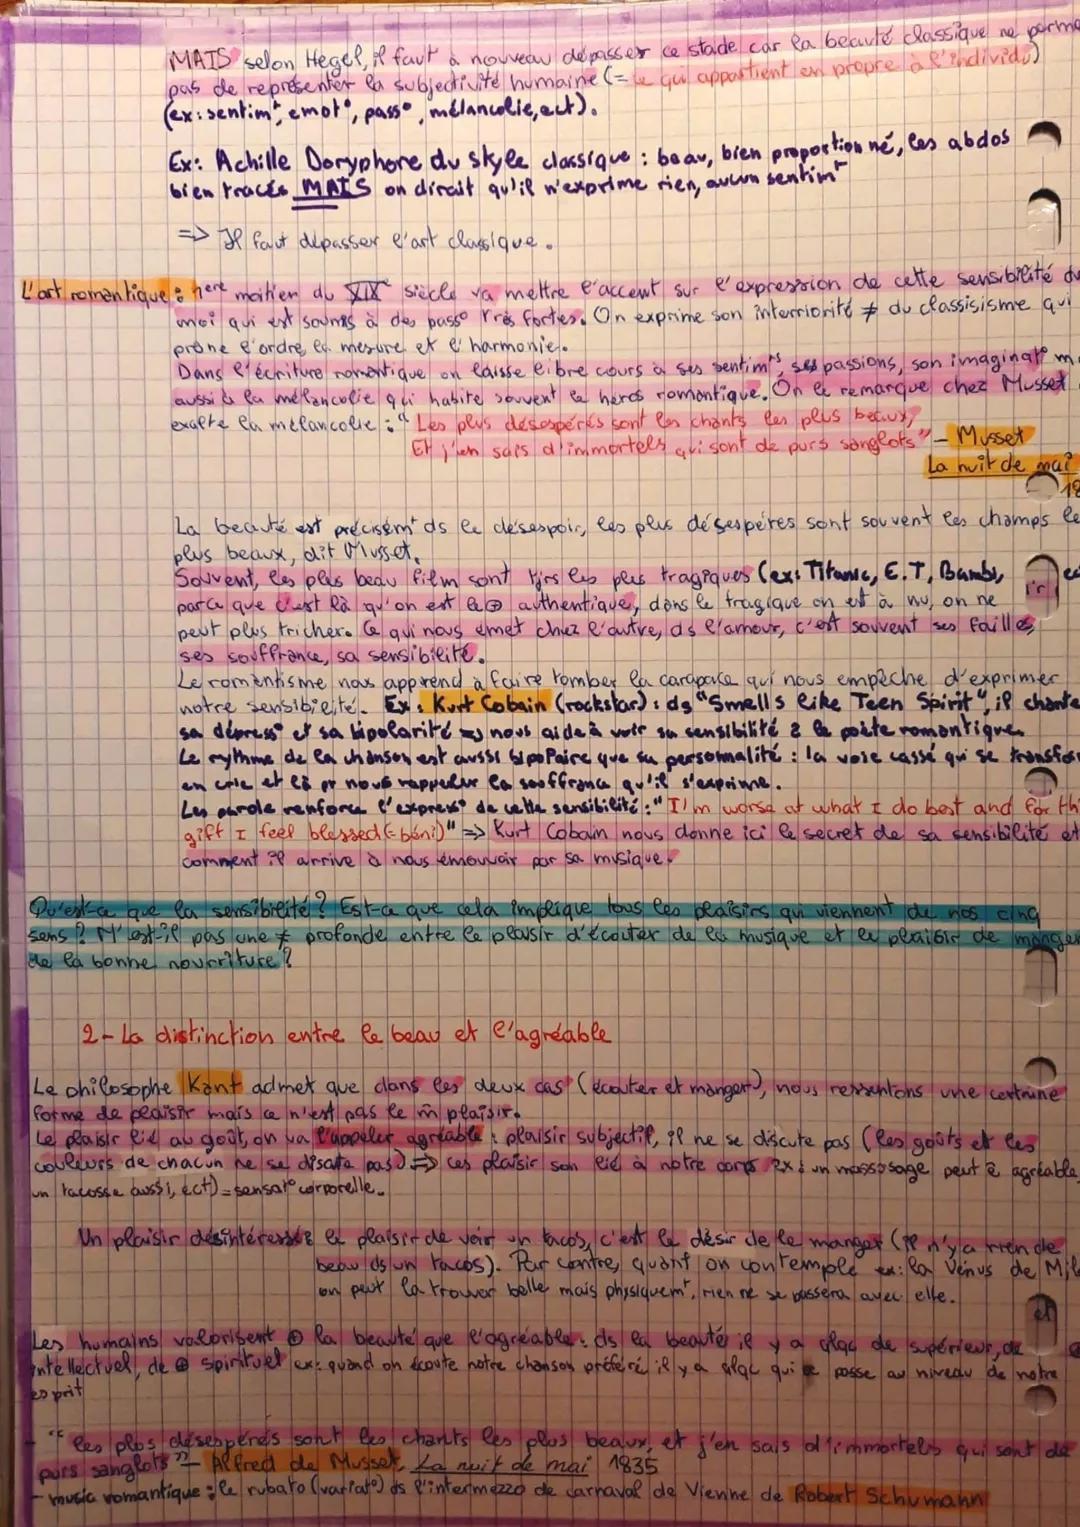 MAIS selon Hegel, il faut à nouveau dépasser ce stade car la beauté classique ne perme
pas de représenter la subjectivité humaine (= ce qui appartient en propre à l'individu)
(ex: sentimt, émot°, pass°, mélancolie, ect).
Ex: Achille Doryphore du style classique : beau, bien proportionné, les abdos
bien tracés MAIS on dirait qu'il n'exprime rien, aucun sentimt
=> Il faut dépasser l'art classique.
L'art romantique : 1ere moitien du XIXe siècle va mettre l'accent sur l'expression de cette sensibilité du
moi qui est soumis à des pass° très fortes. On exprime son interriorité ≠ du classisisme qui
prône l'ordre, la mesure et l'harmonie.
Dans l'écriture romantique on laisse libre cours à ses sentimts, ses passions, son imaginat° m
aussi à la mélancolie qui habite souvent le héros romantique. On le remarque chez Musset
exalte la mélancolie : "Les plus désespérés sont les chants les plus beaux,
Et j'en sais d'immortels qui sont de purs sanglots" - Musset
La nuit de mai
18
La beauté est précisémt ds le désespoir, les plus désespérés sont souvent les champs le
plus beaux, dit Musset.
Souvent, les plus beau film sont tjrs les plus tragiques (ex: Titanic, E.T, Bambi, ec
parce que c'est là qu'on est le ⊕ authentique, dans le tragique on est à nu, on ne
peut plus tricher. Ce qui nous émet chez l'autre, ds l'amour, c'est souvent ses failles,
ses souffrance, sa sensibilité.
Le romantisme nous apprend à faire tomber la carapace qui nous empêche d'exprimer
notre sensibilité. Ex: Kurt Cobain (rockstar) : ds "Smells like Teen Spirit", il chante
sa dépress° et sa bipolarité => nous aide à voir sa sensibilité poète romantique.
Le rythme de la chanson est aussi bipolaire que sa personnalité : la voie cassé qui se transfor
en crie est là pr nous rappeler la souffrance qu'il s'exprime.
Les parole renforce l'express° de cette sensibilité : "I'm worse at what I do best and for th
gift I feel blessed (=béni)" => Kurt Cobain nous donne ici le secret de sa sensibilité et
comment il arrive à nous émouvoir par sa musique.
Qu'est-ce que la sensibilité ? Est-ce que cela implique tous les plaisirs qui viennent de nos cinq
sens ? N'est-il pas une ≠ profonde entre le plaisir d'écouter de la musique et le plaisir de manger
de la bonne nourriture ?
2- La distinction entre le beau et l'agréable
Le philosophe Kant admet que dans les deux cas (écouter et manger), nous ressentons une certaine
forme de plaisir mais ce n'est pas le m̂ plaisir.
Le plaisir lié au goût, on va l'appeler agréable : plaisir subjectif, il ne se discute pas (les goûts et les
couleurs de chacun ne se discute pas) => ces plaisir son lié à notre corps ex: un massosage peut ê agréable,
un tacosse aussi, ect) = sensat° corporelle.
Un plaisir désintéressé: le plaisir de voir un tacos, c'est le désir de le manger (il n'y a rien de
beau ds un tacos). Par contre, quant on contemple ex: la Vénus de Mil
on peut la trouver belle mais physiquemt, rien ne se passera avec elle.
Les humains valorisent ⊕ la beauté que l'agréable : ds la beauté il y a qlqc de supérieur, de
intellectuel, de ⊕ spirituel ex: quand on écoute notre chanson préféré il y a qlqc qui se passe au niveau de notre
esprit
- "les plus désespérés sont les chants les plus beaux, et j'en sais d'immortels qui sont de
purs sanglots" - Alfred de Musset, La nuit de mai 1835
- music romantique : le rubato (variat°) ds l'intermezzo de carnaval de Vienne de Robert Schumann